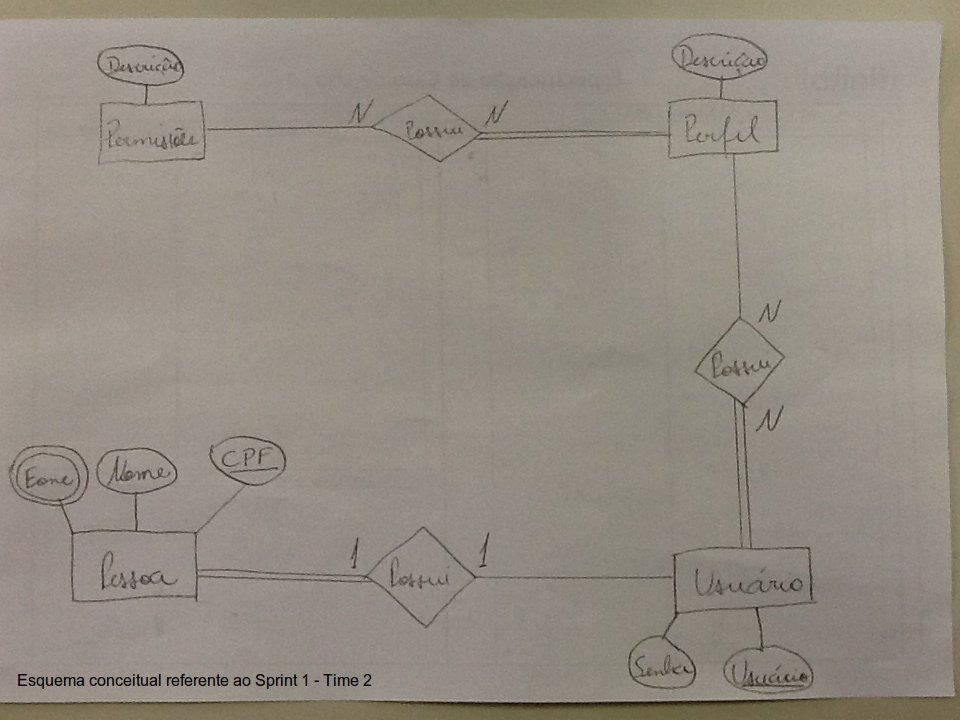 Descrição
Descrição
N
N
Permissões
Possui
Perfil
N
Possui
N
Fone
Nome
CPF
1
1
Pessoa
Possui
Usuário
Senha
Usuário
Esquema conceitual referente ao Sprint 1 - Time 2